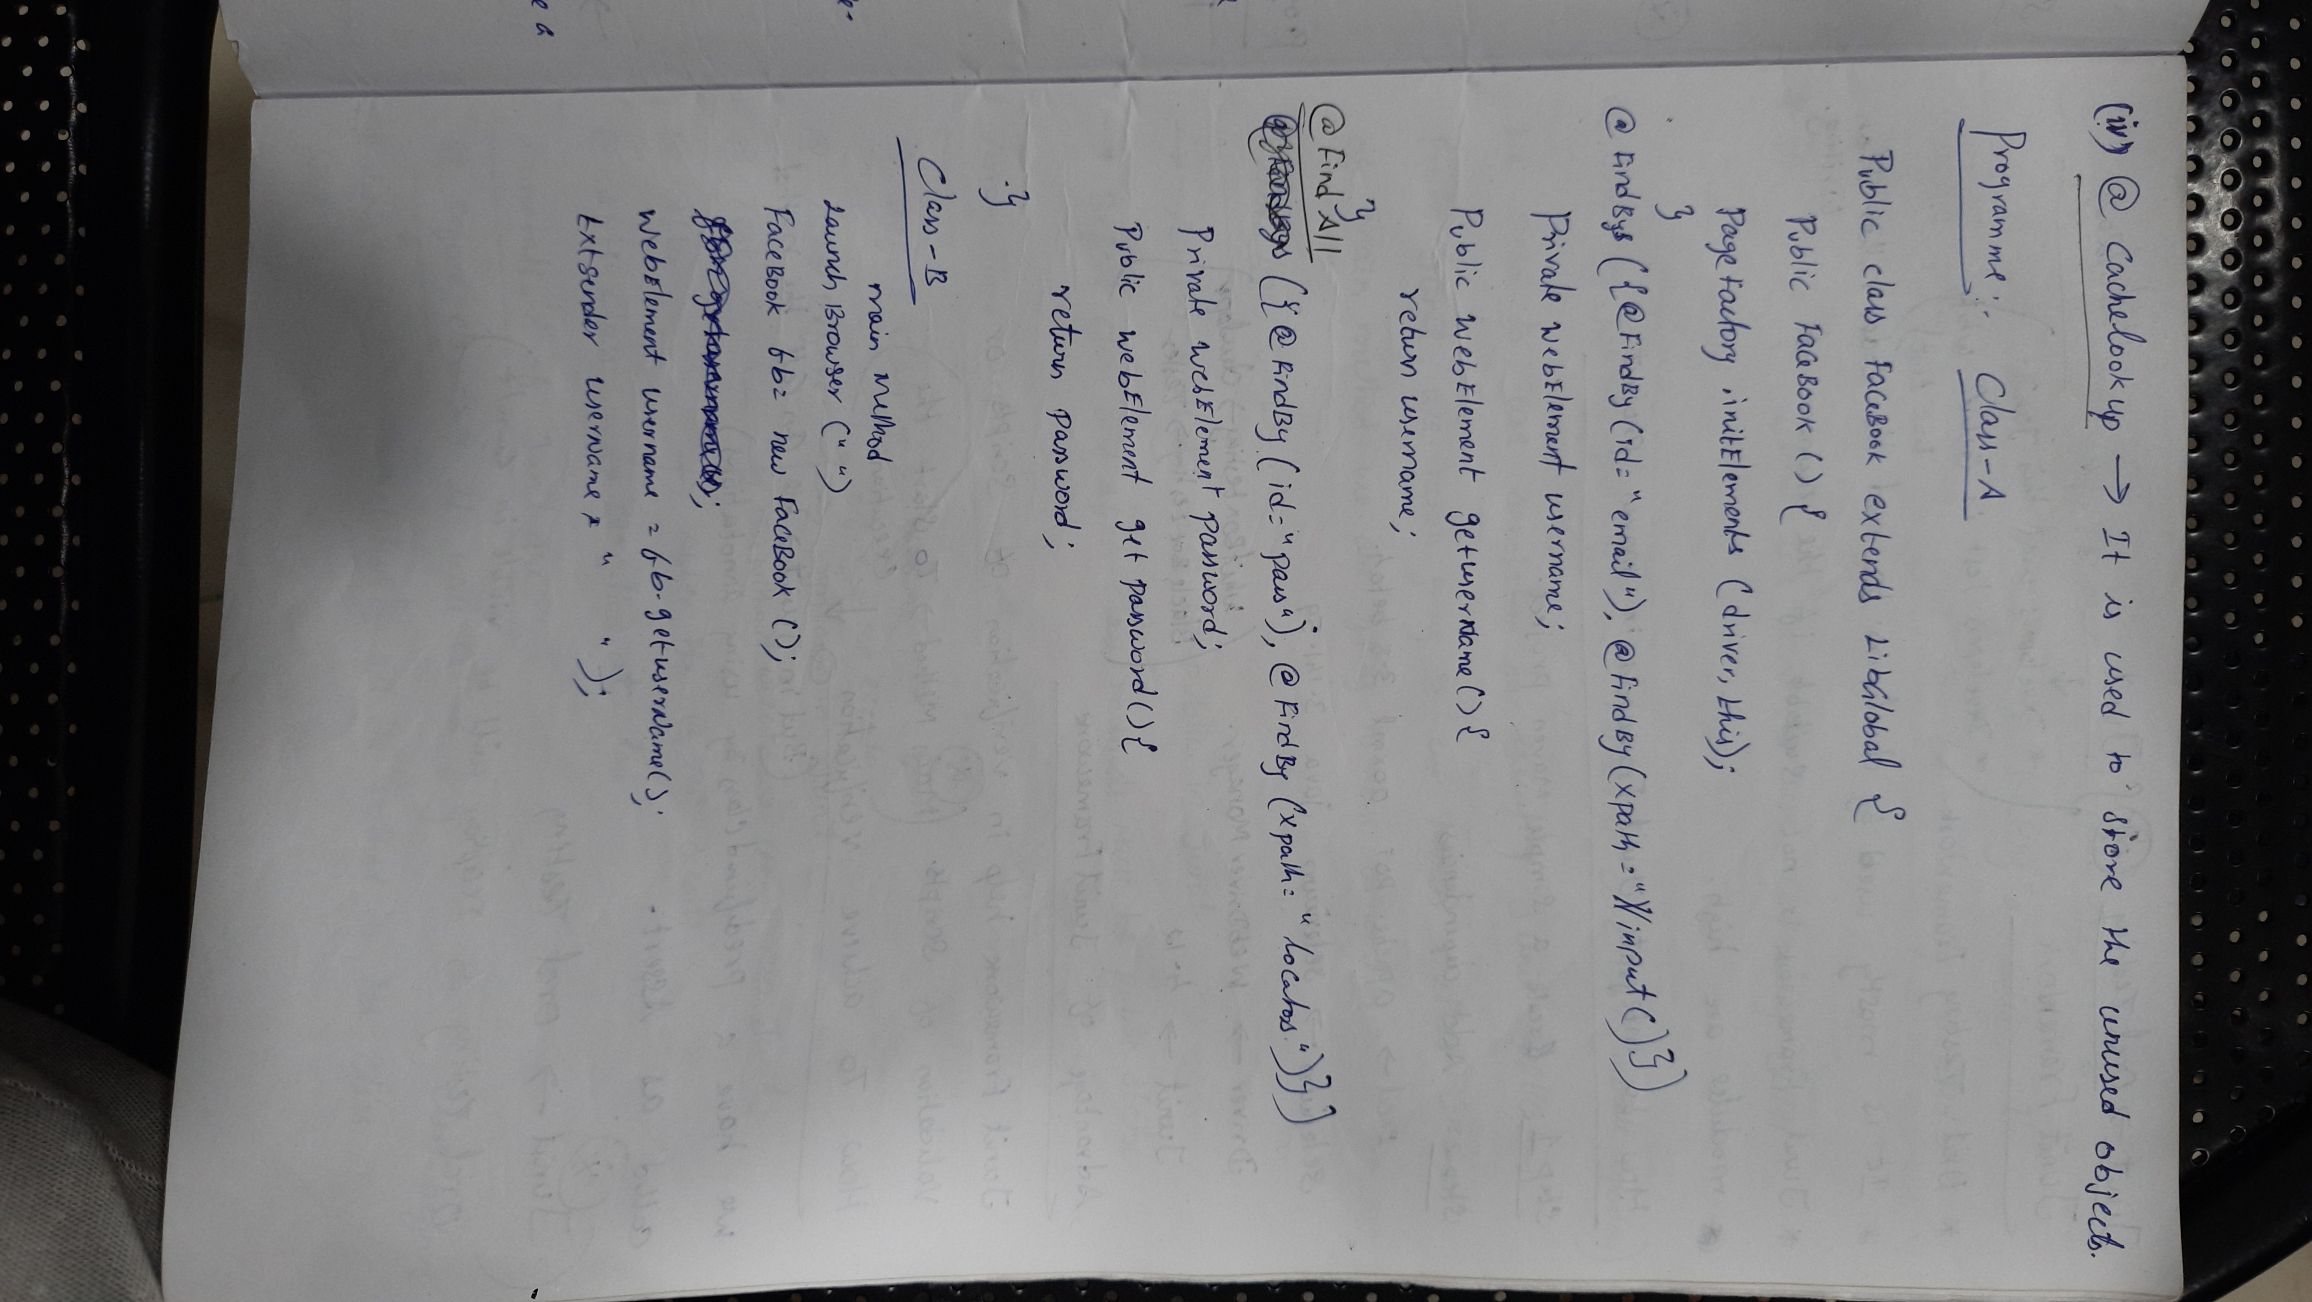 (iv) @ Cachelookup → It is used to store the unused objects.
Programme:- Class-A
Public class FaceBook extends LibGlobal {
Public FaceBook () {
Pagefactory. initElements (driver, this);
}
@ FindBys ({@FindBy (id="email"), @findBy (xpath="//input()})
Private webElement username;
Public webElement getuserName() {
return username;
}
@Find All
({@FindBy (id="pass"), @FindBy (xpath="locators")})
Private webElement password;
Public webElement get password() {
return password;
}
Class-B
main method
Launch Browser (" ")
FaceBook fb= new FaceBook ();
webElement username = fb.getuserName();
txtsender username, " ");